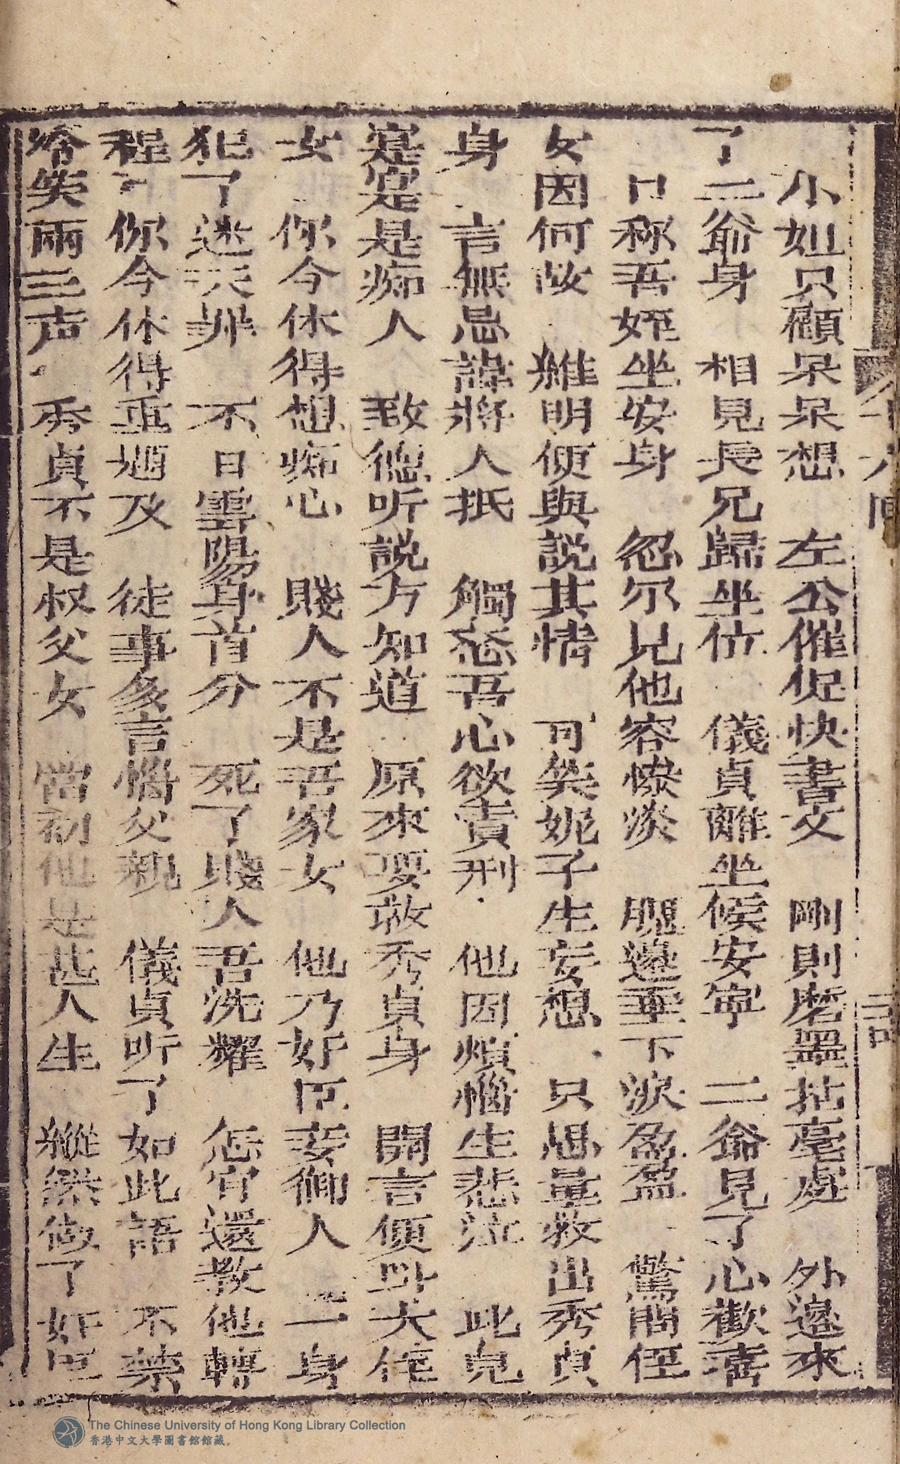 小姐只顧呆呆想 左公催促快書文 剛則磨墨拈毫處 外邊來
了二爺身 相見長兄歸坐位 儀貞離坐候安寧 二爺見了心歡喜
口称吾姪坐安身 忽尔見他容慘淡 腮邊垂下淚盈盈 驚問侄
女因何故 難明便與說其情 可笑妮子生妄想 只思量救出秀貞
身 言無忌諱將人抵 觸惹吾心欲責刑 他因煩惱生悲泣 此兒
寔寔是痴人 致德听説方知道 原來要救秀貞身 開言便叫大侄
女 你今休得想痴心 賤人不是吾家女 他乃奸臣妾御人 一身
犯了迷天罪 不日雲陽身首分 死了賤人吾洗耀 怎肯還教他轉
程 你今休得重題及 徒事多言惱父親 儀貞听了如此語 不禁
冷笑兩三声 秀貞不是叔父女 當初他是甚人生 縱然做了奸臣
十八回
The Chinese University of Hong Kong Library Collection
香港中文大學圖書館館藏